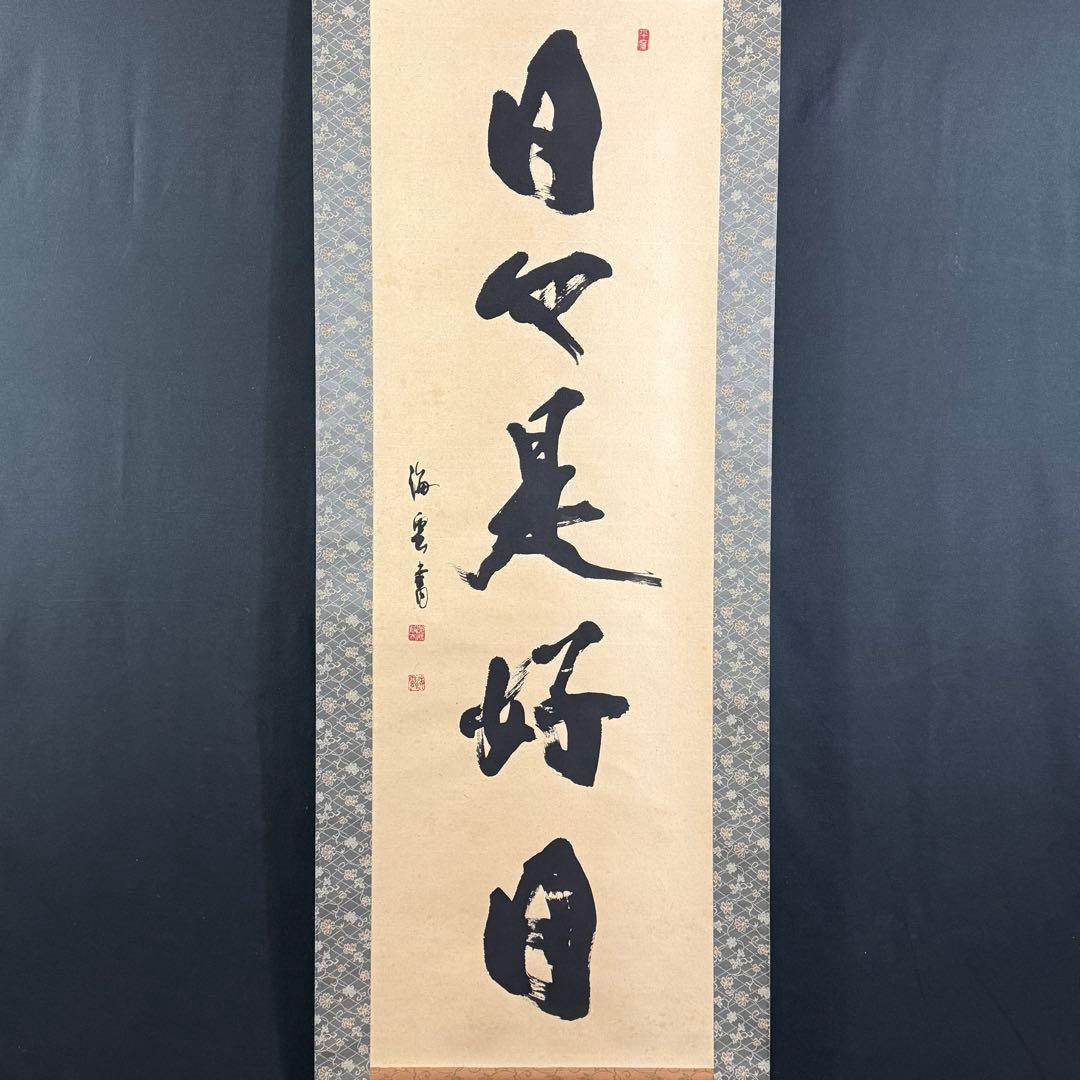 日々是好日
海雲書